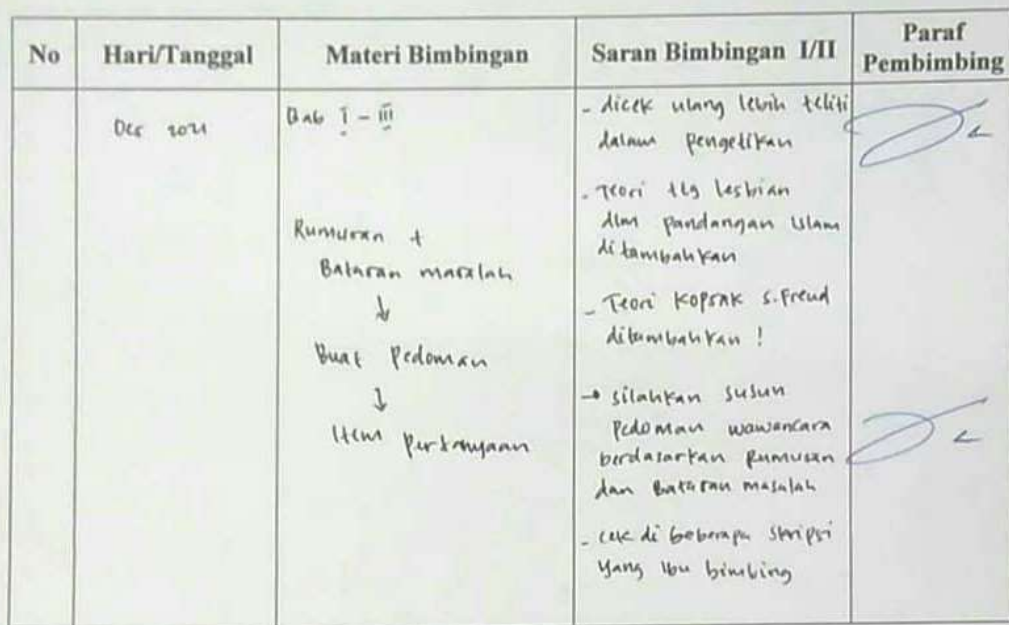 No
Hari/Tanggal
Materi Bimbingan
Saran Bimbingan I/II
Paraf
Pembimbing
Des 2021
Bab I - III
Rumusan +
Batasan masalah
↓
Buat Pedoman
↓
Item Pertanyaan
- dicek ulang lebih teliti
dalam pengetikan
- Teori ttg lesbian
dlm pandangan Islam
ditambahkan
- Teori S. Freud
ditambahkan !
→ silahkan susun
Pedoman wawancara
berdasarkan Rumusan
dan Batasan masalah
- cek di beberapa skripsi
yang Ibu bimbing